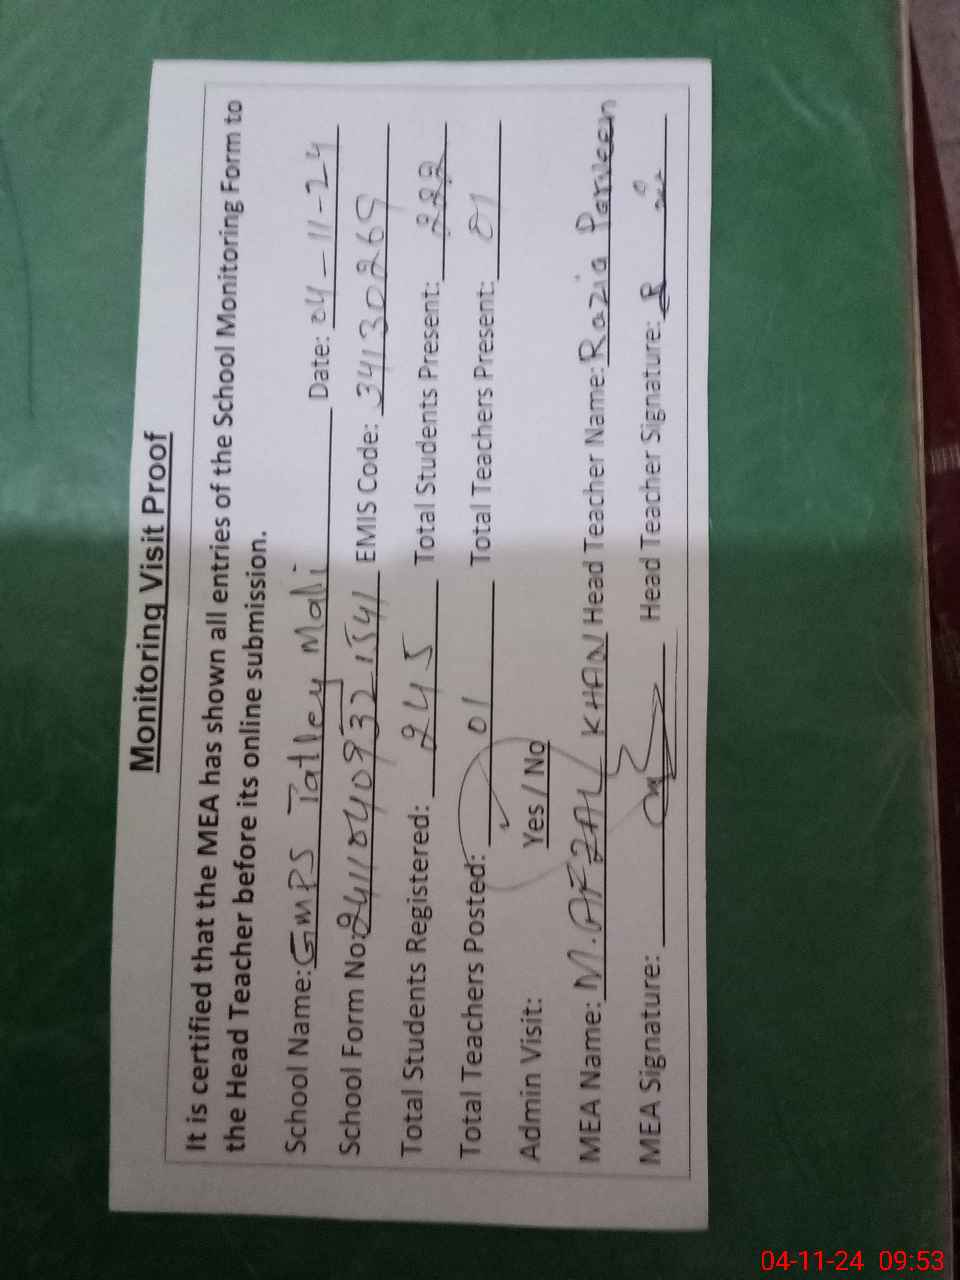 Monitoring Visit Proof
It is certified that the MEA has shown all entries of the School Monitoring Form to
the Head Teacher before its online submission.
School Name: GMPS Tatley Mali Date: 04-11-24
School Form No: 24110409321541 EMIS Code: 34130269
Total Students Registered: 245 Total Students Present: 222
Total Teachers Posted: 01 Total Teachers Present: 01
Admin Visit: Yes / No
MEA Name: M. AFZAL KHAN Head Teacher Name: Razia Parveen
MEA Signature: Head Teacher Signature:
04-11-24 09:53